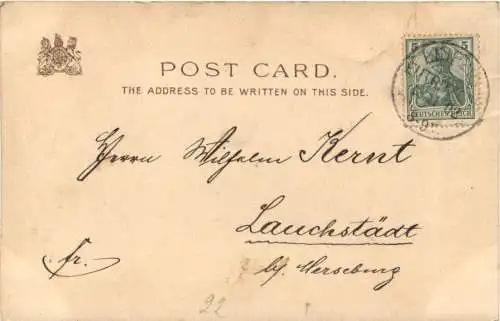 5 5
DEUTSCHES REICH
POST CARD.
THE ADDRESS TO BE WRITTEN ON THIS SIDE.
Herrn Wilhelm Kernt
Lauchstädt
b/ Merseburg
fr.
22